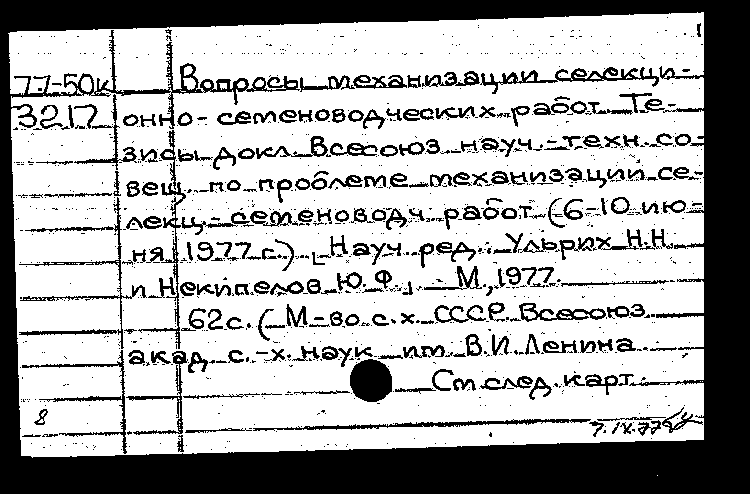 77-50к Вопросы механизации селекци-
3217 онно-семеноводческих работ. Те-
зисы докл. Всесоюз. науч.-техн. со-
вещ. по проблеме механизации се-
лекц.-семеноводч. работ (6-10 ию-
ня 1977 г.) [Науч. ред.: Ульрих Н.Н.
и Некипелов Ю.Ф.] - М., 1977.
62 с. (М-во с.х. СССР. Всесоюз.
акад. с.-х. наук им. В.И. Ленина
См след. карт.
8
7.IX.77г